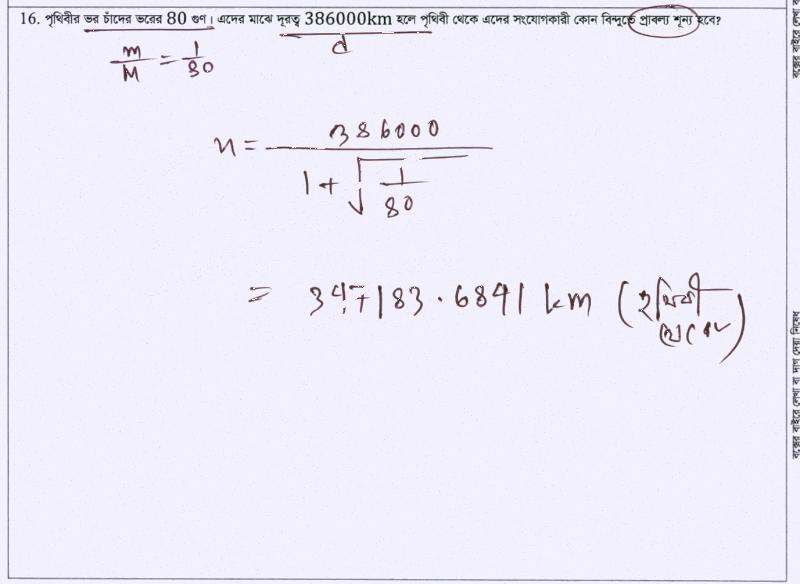 16. পৃথিবীর ভর চাঁদের ভরের 80 গুণ। এদের মাঝে দূরত্ব 386000km হলে পৃথিবী থেকে এদের সংযোগকারী কোন বিন্দুতে প্রাবল্য শূন্য হবে?
m/M = 1/80
d
x = 386000 / (1 + √(1/80))
= 347183.6841 km (পৃথিবী থেকে)
বক্সের বাইরে লেখা বা দাগ দেয়া নিষেধ